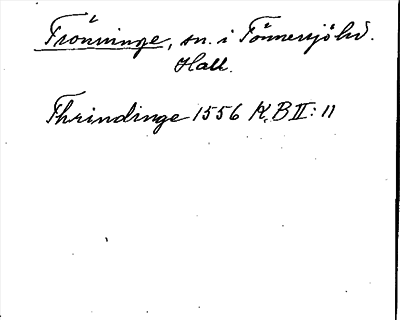 Trönninge, sn. i Tönnersjö hd.
Hall.
Thrindinge 1556 K. B II: 11